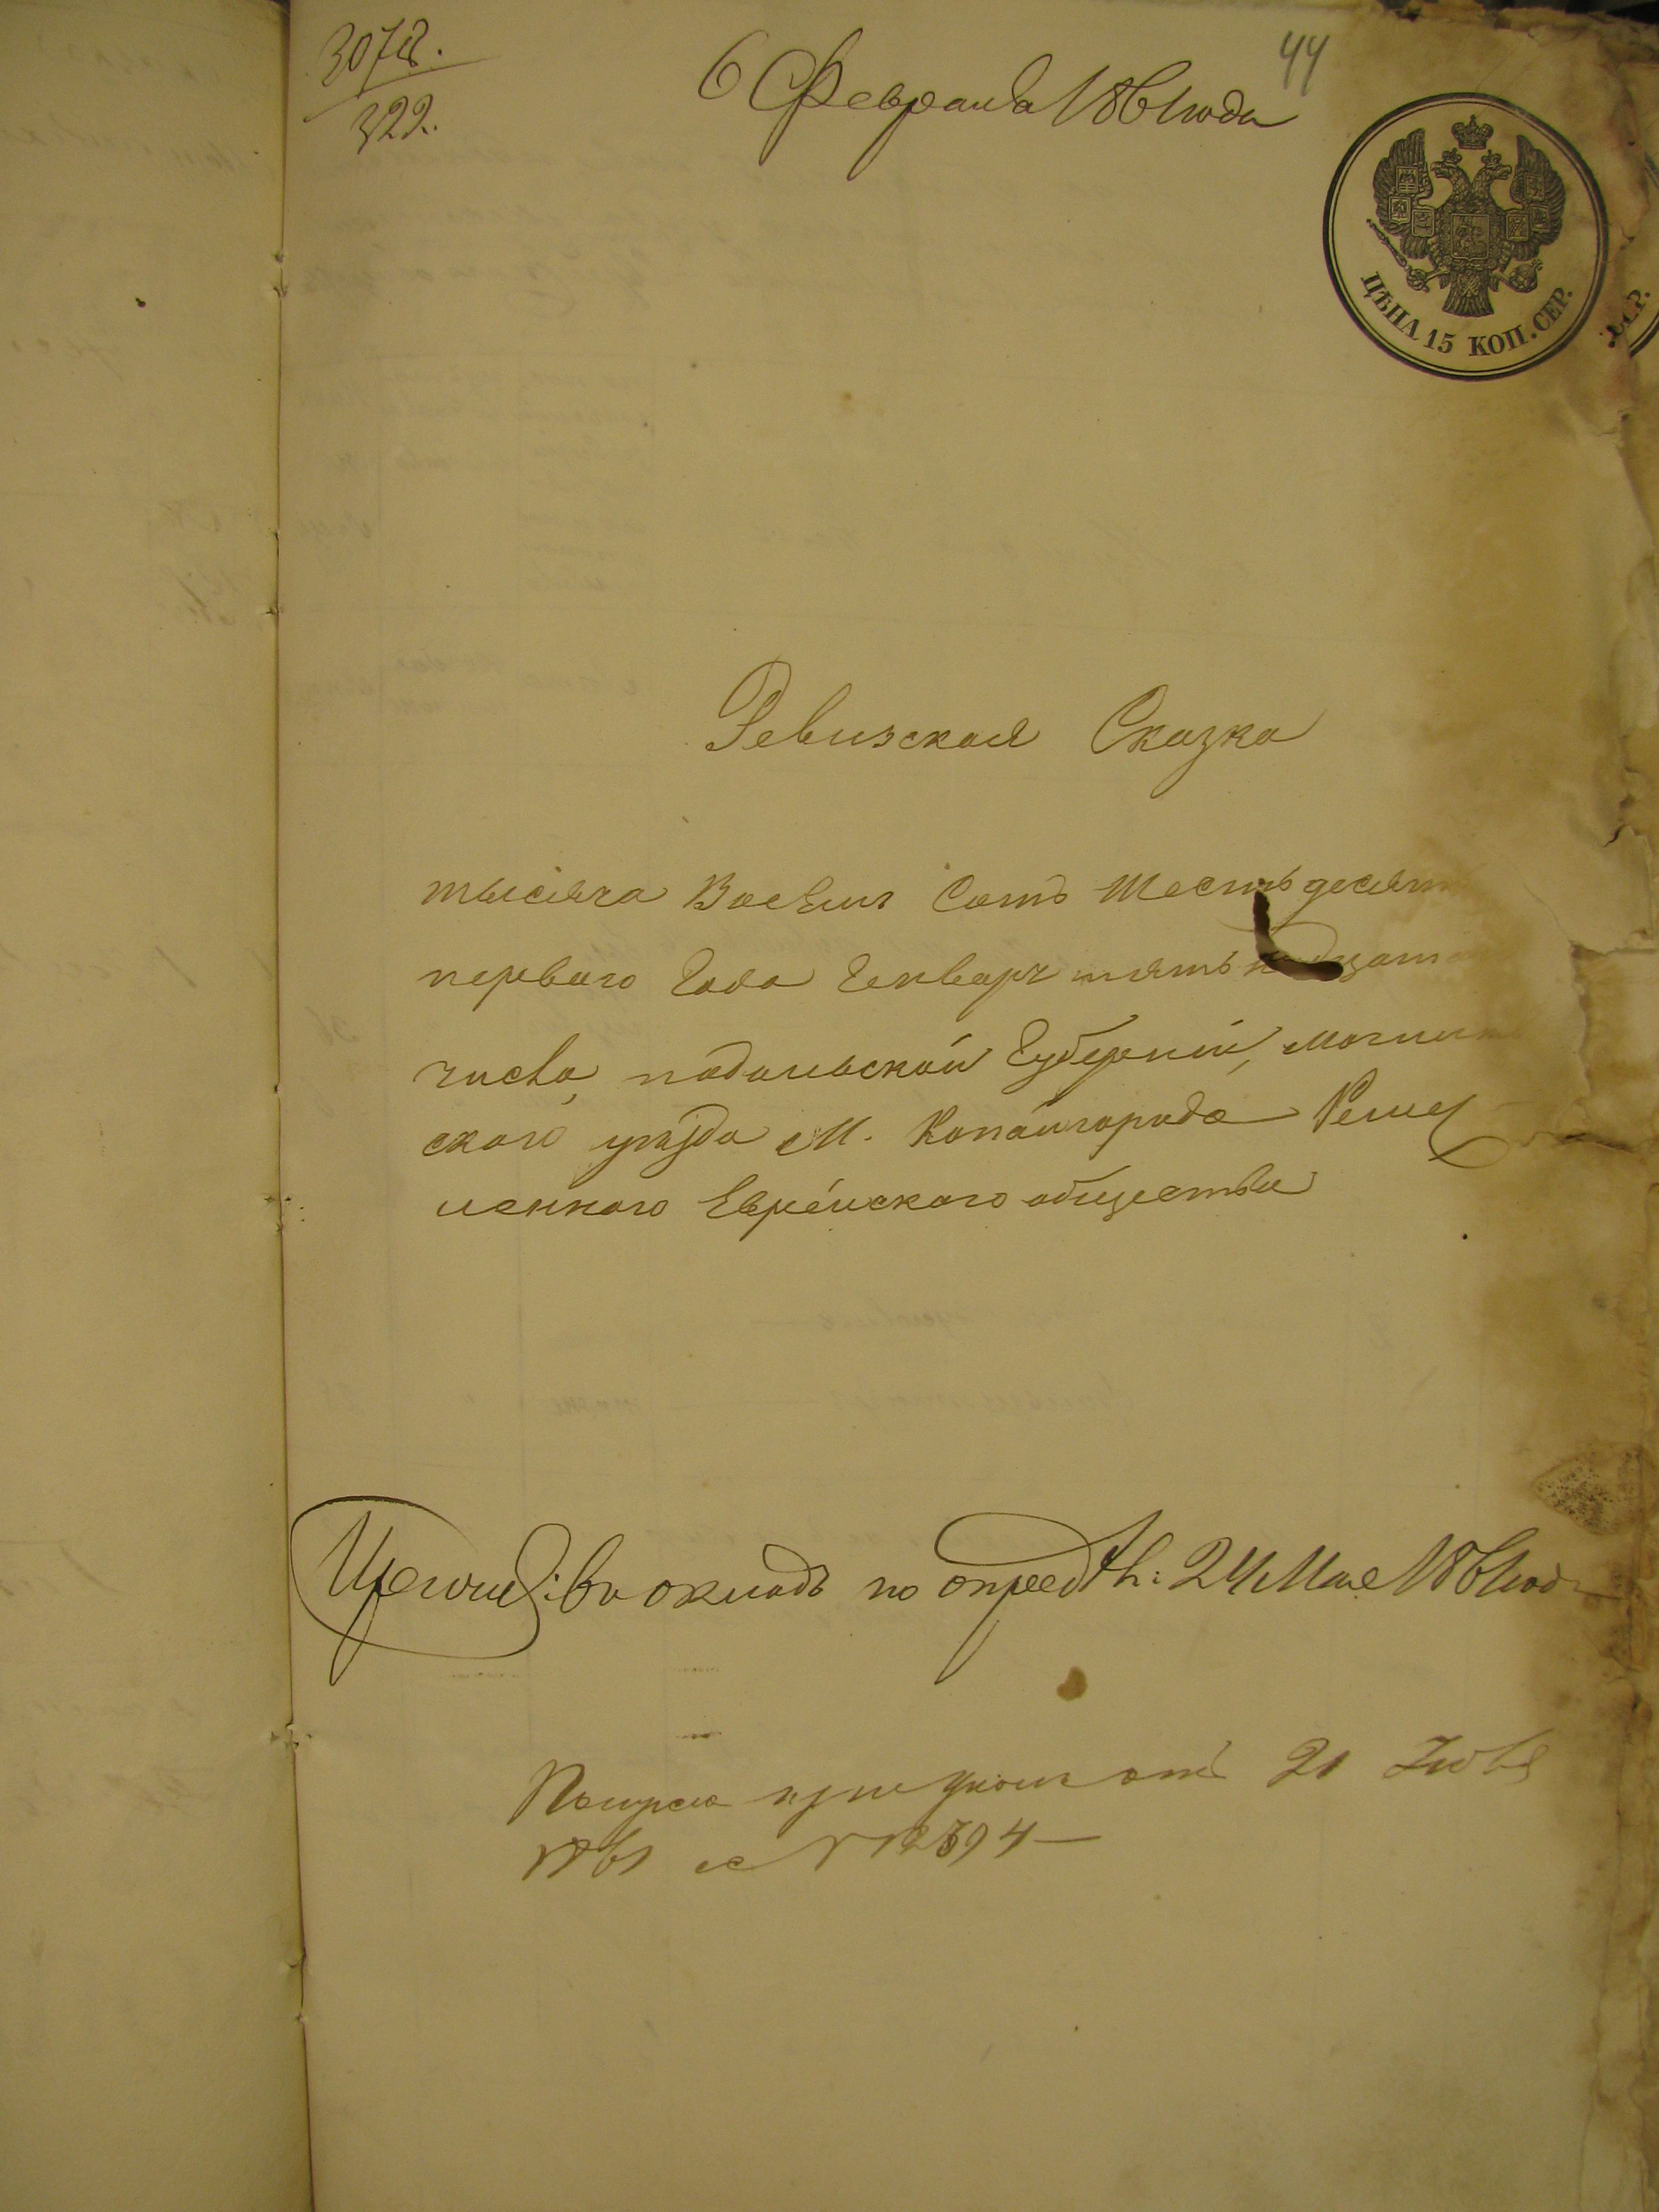 3078.
322.
6 Февраля 1861 года
44
ЦѢНА 15 КОП. СЕР.
Ревизская Сказка
тысяча Восемь Сотъ Шестьдесятъ
первого Года Генваря пятьнадцатого
числа, подольской Губерніи, могилев
ского уѣзда М. Копайгорода Ремес
ленного Еврейского общества
въ окладъ по опредѣ: 24 Мая 1861 года
отъ 21 Іюля
1861 № 12394